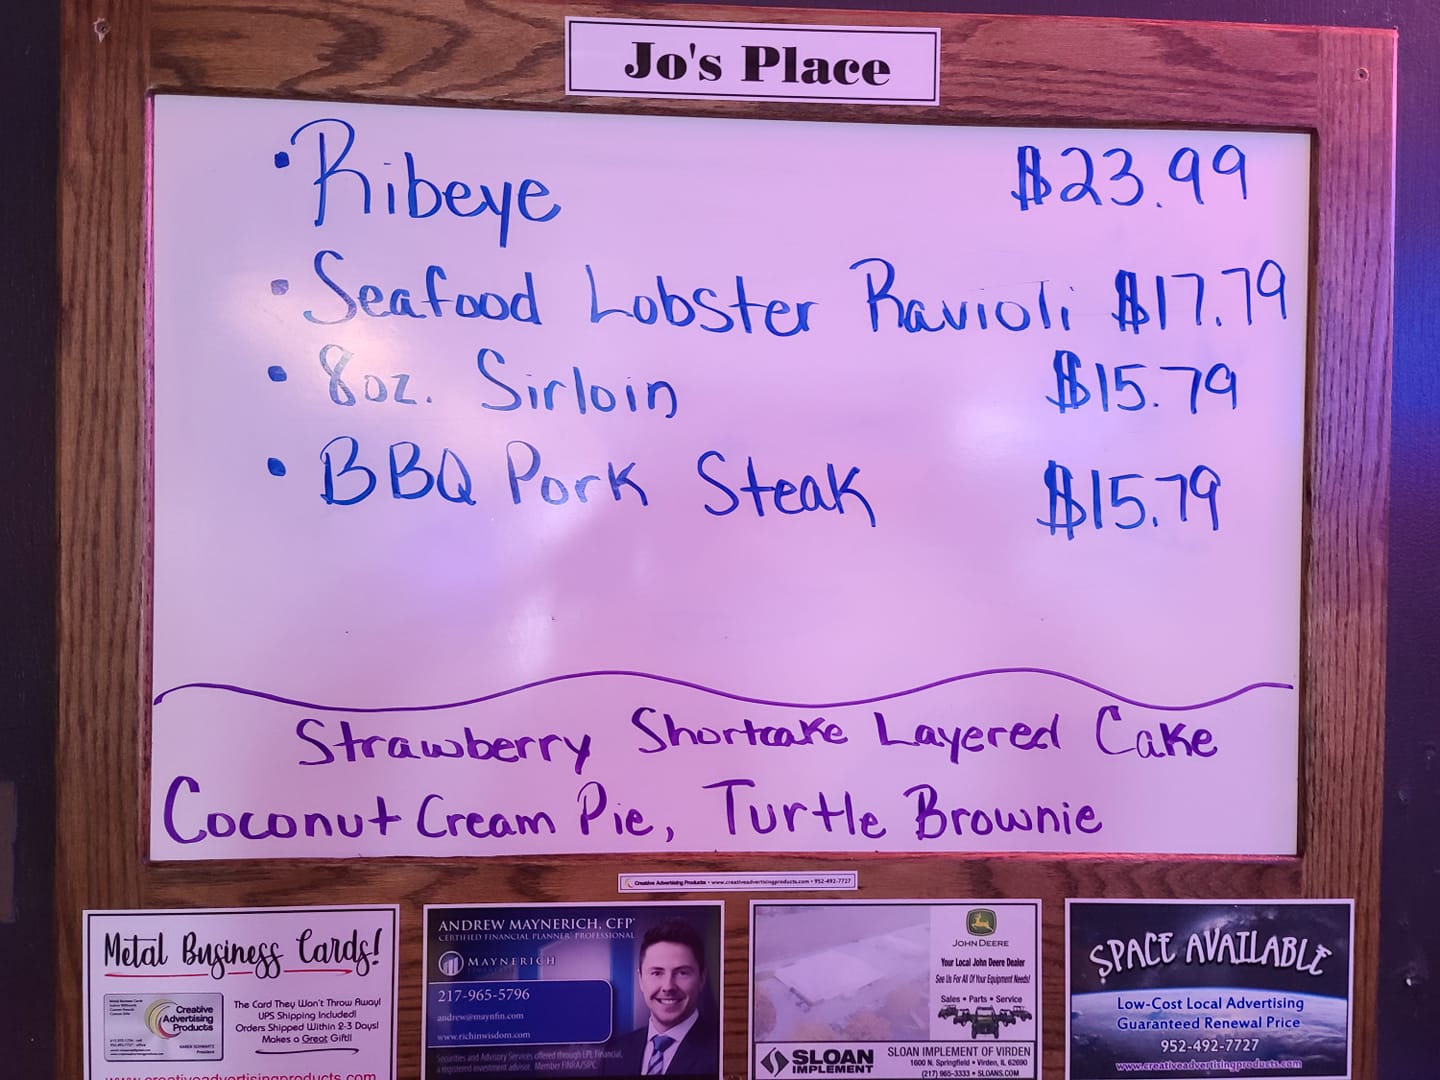 Jo's Place
• Ribeye $23.99
• Seafood Lobster Ravioli $17.79
• 8oz. Sirloin $15.79
• BBQ Pork Steak $15.79
Strawberry Shortcake Layered Cake
Coconut Cream Pie, Turtle Brownie
Creative Advertising Products • www.creativeadvertisingproducts.com • 952-492-7727
Metal Business Cards!
Creative
Advertising
Products
KAREN SCHWARTZ
President
The Card They Won't Throw Away!
UPS Shipping Included!
Orders Shipped Within 2-3 Days!
Makes a Great Gift!!
www.creativeadvertisingproducts.com
ANDREW MAYNERICH, CFP®
CERTIFIED FINANCIAL PLANNER™ PROFESSIONAL
MAYNERICH
FINANCIAL
217-965-5796
andrew@maynfin.com
www.richinwisdom.com
Securities and Advisory Services offered through LPL Financial,
a registered investment advisor. Member FINRA/SIPC.
JOHN DEERE
Your Local John Deere Dealer
See Us For All Of Your Equipment Needs!
Sales • Parts • Service
SLOAN
IMPLEMENT
SLOAN IMPLEMENT OF VIRDEN
1600 N. Springfield • Virden, IL 62690
(217) 965-3333 • SLOANS.COM
SPACE AVAILABLE
Low-Cost Local Advertising
Guaranteed Renewal Price
952-492-7727
www.creativeadvertisingproducts.com